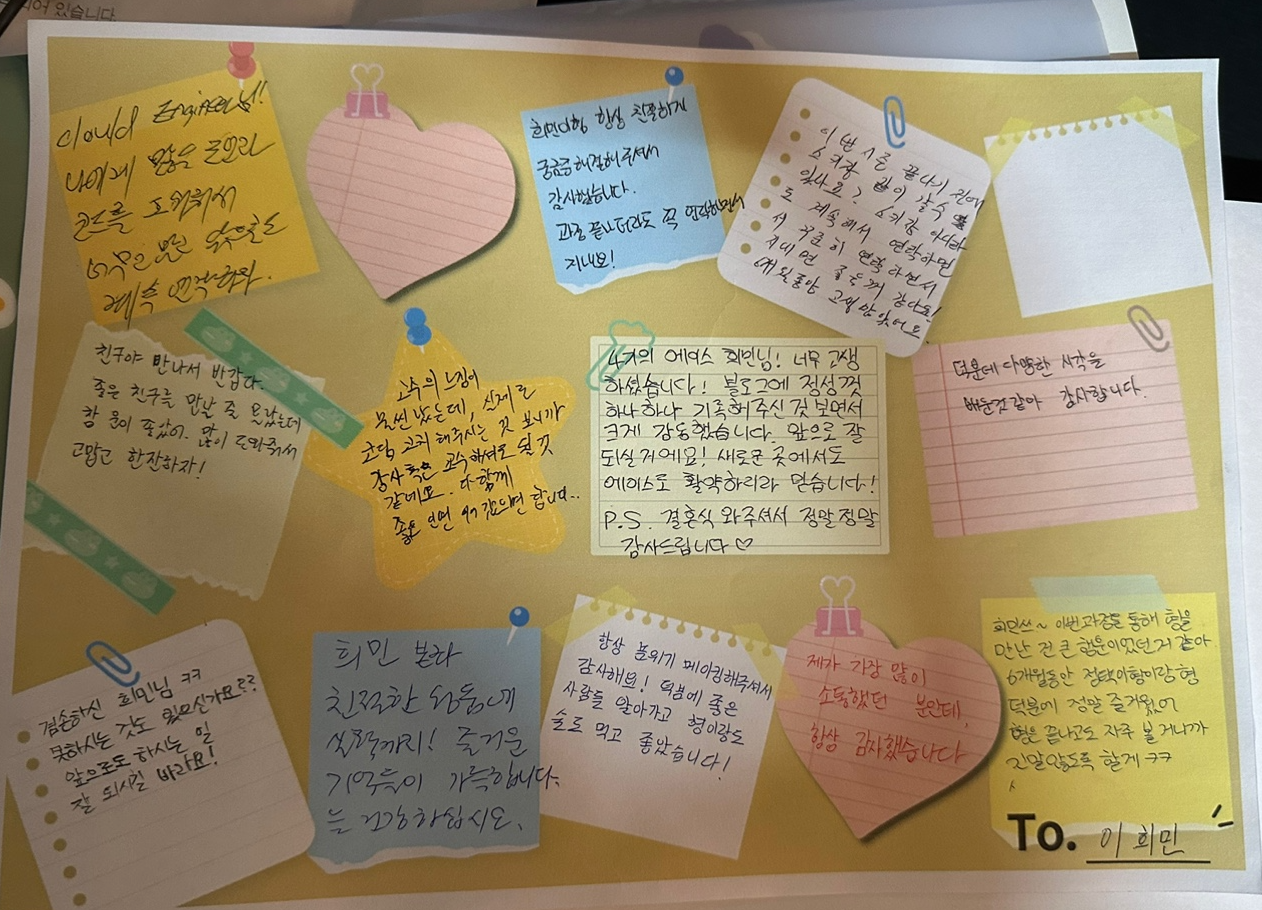 되어 있습니다
Cloud Engineer님!!
나에게 많은
코드를
계속 연락하자.
희민이형 항상 친절하게
궁금증 해결해주셔서
감사했습니다.
과정 끝나더라도 꼭 연락하면서
지내요!
이번 시즌 끝나기 전에
스키장 같이 갈수
있나요? 스키장 아니라
도 계속해서 연락하면
서 지료히 연락하면서
지내면 좋을꺼 같아요!
6개월동안 고생많았어요
친구야 만나서 반갑다.
좋은 친구를 만날 줄 몰랐는데
참 운이 좋았어. 많이 도와줘서
고맙고 한잔하자!
고수의 느낌이
물씬 났는데, 실제로
코딩 고쳐 해주시는 것 보니까
강사 혹은 교수하셔도 될 것
같네요. 다함께
좋은 인연 이어갔으면 합니다..
4기의 에이스 희민님! 너무 고생
하셨습니다! 블로그에 정성껏
하나하나 기록해주신 것 보면서
크게 감동했습니다. 앞으로 잘
되실거에요! 새로운 곳에서도
에이스로 활약하리라 믿습니다!
P.S. 결혼식 와주셔서 정말정말
감사드립니다♡
덕분에 다양한 시각을
배운것같아 감사합니다.
겸손하신 희민님 ㅋㅋ
못하시는 것도 있으신가요ㄷㄷ?
앞으로도 하시는 일
잘 되시길 바라요!
희민 본좌
친절한 원동에게
산책까지! 즐거운
기억들이 가득합니다.
늘 건강하십시오.
항상 분위기 메이킹해주셔서
감사해요! 덕분에 좋은
사람들 알아가고 형이랑도
술도 먹고 좋았습니다!
제가 가장 많이
소통했던 분인데,
항상 감사했습니다
희민쓰~ 이번과정을 통해 형을
만난 건 큰 행운이었던거 같아
6개월동안 형
덕분에 정말 즐거웠어
형은 끝나고도 자주 볼거니까
긴말않도록 할게 ㅋㅋ
To. 이희민